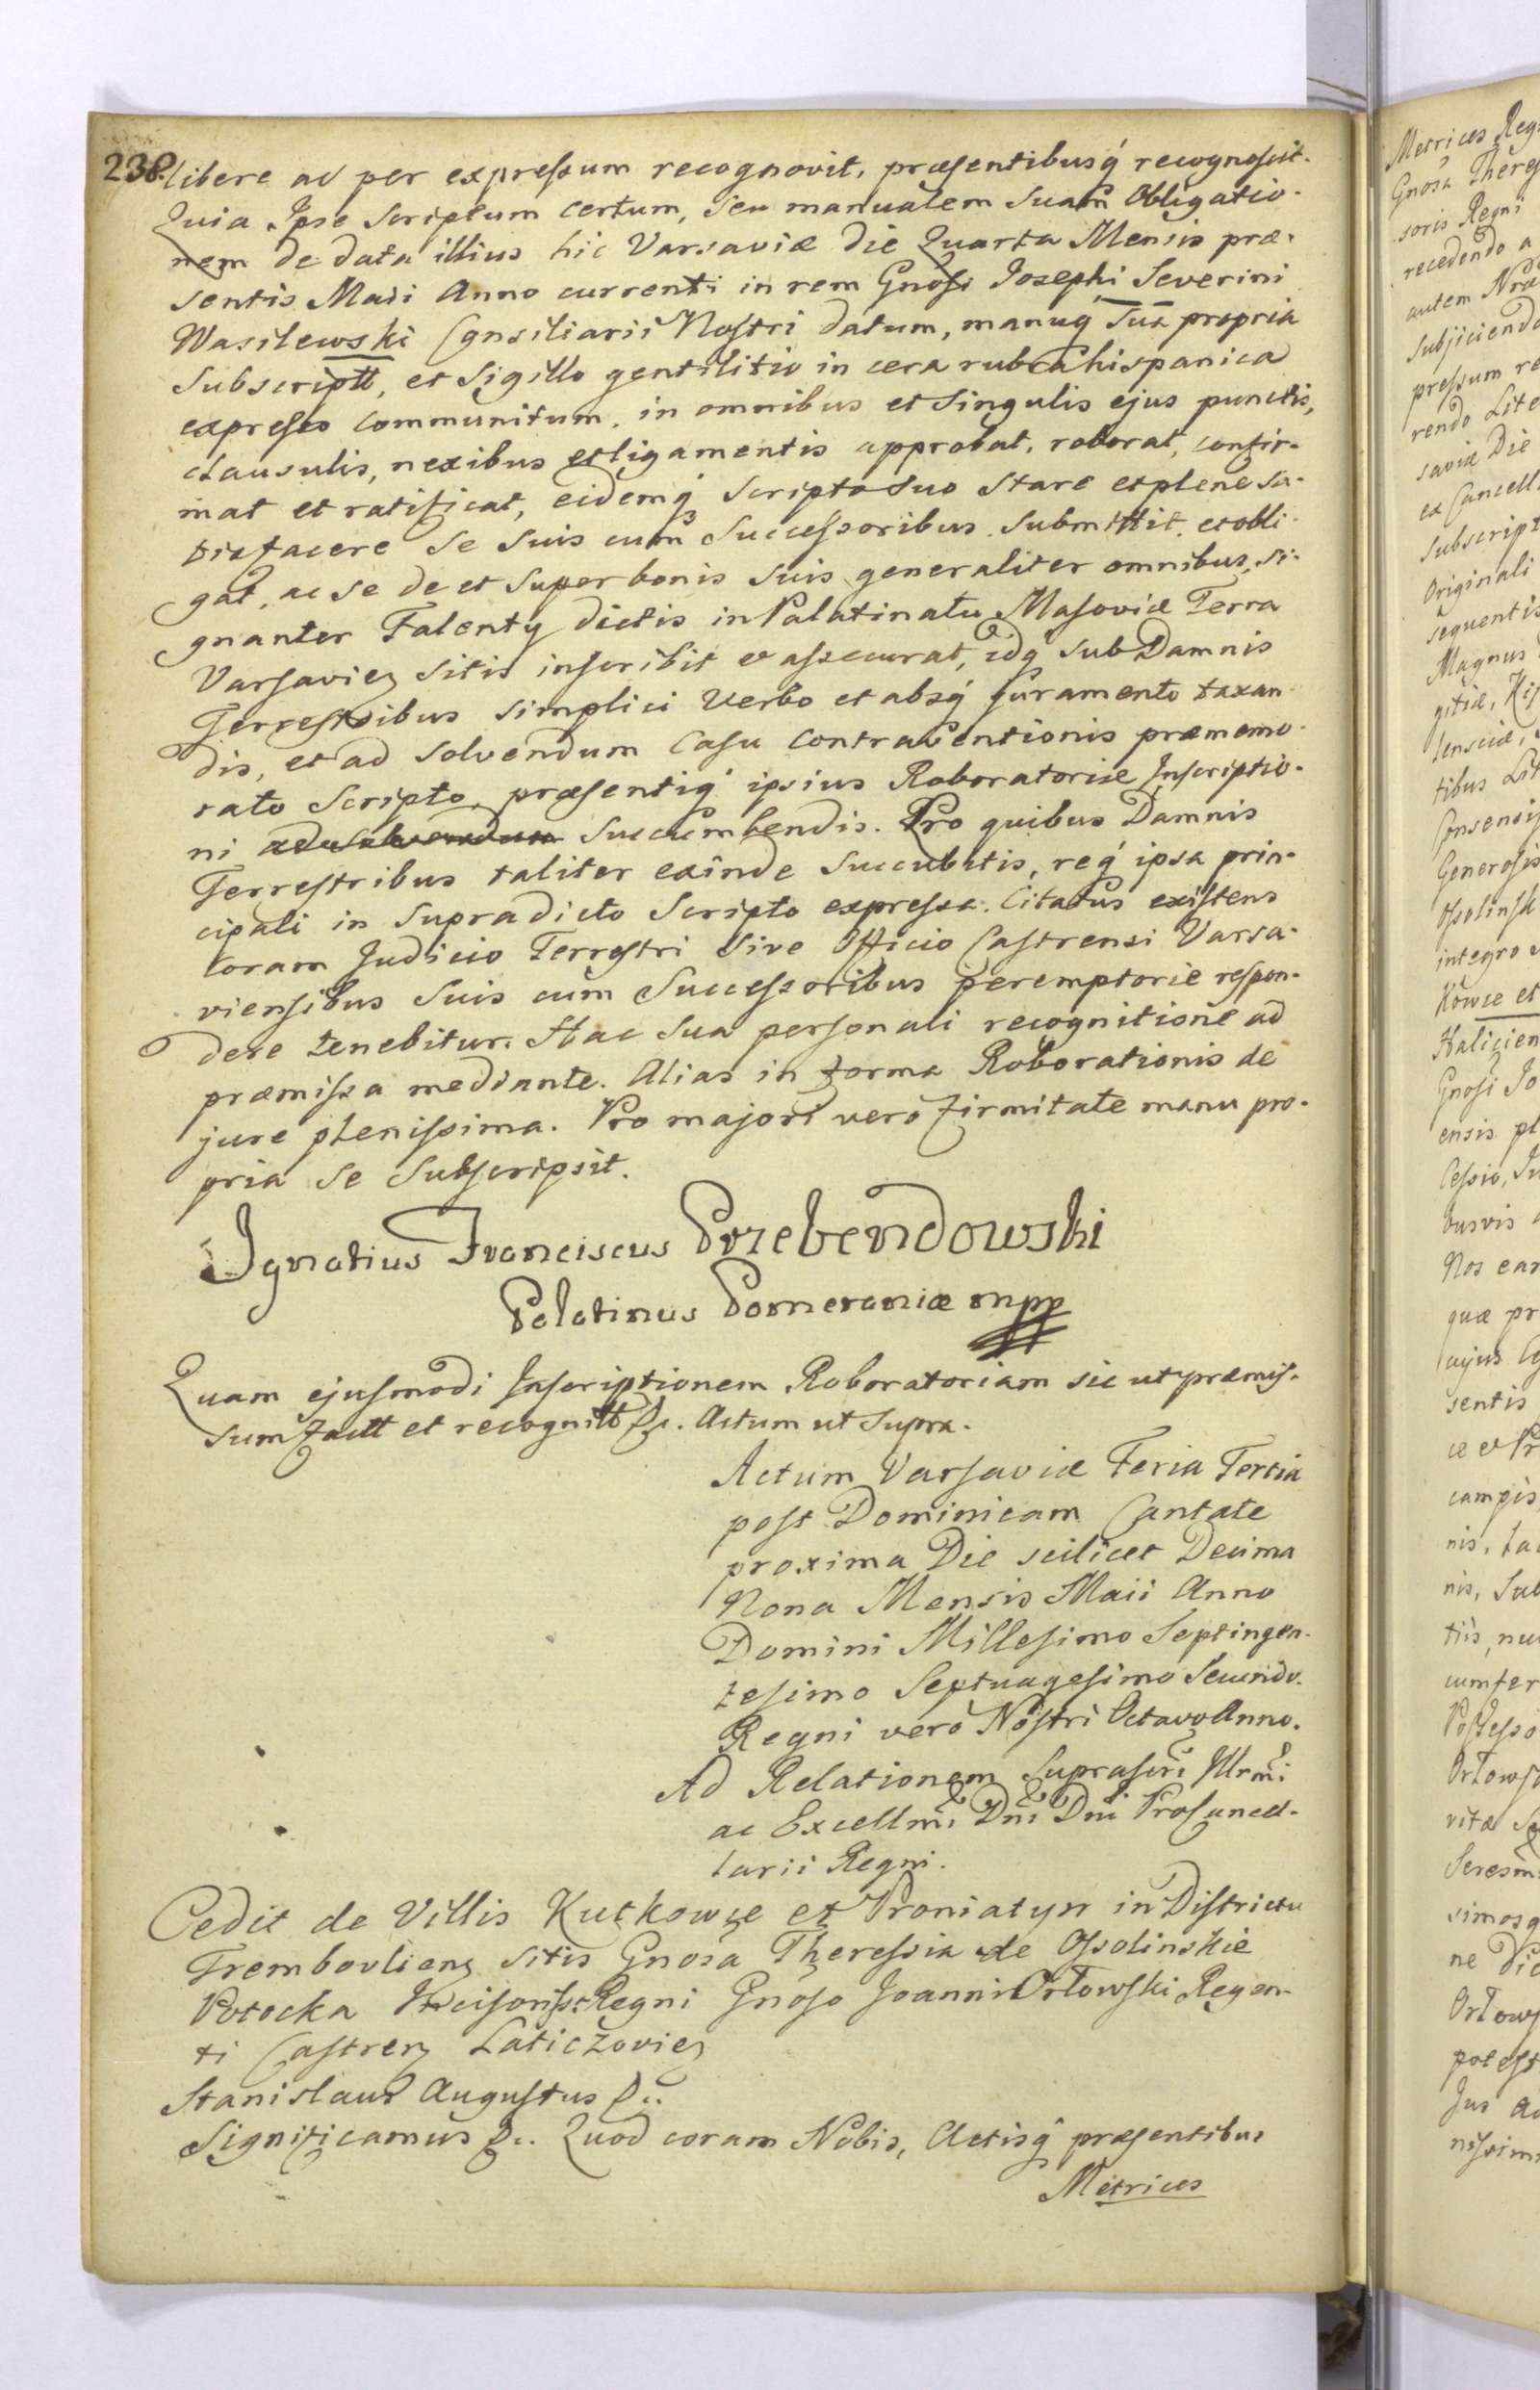 238.
libere ac per expressum recognovit, præsentibusq́ recognoscit.
Quia Ipse Scriptum certum, seu manualem Suam Obligatio-
nem de data illius hic Varsaviæ Die Quarta Mensis præ-
sentis Maii Anno currenti in rem Gnosi Josephi Severini
Wasilewski Consiliarii Nostri datum, manuq́ Sua propria
Subscriptt, et Sigillo gentilitio in cera rubra hispanica
expresso communitum, in omnibus et Singulis ejus punctis,
clausulis, nexibus et ligamentis approbat, roborat, confir-
mat et ratificat, eidemq́ Scripto Suo Stare et plene Sa-
tisfacere Se Suis cum Successoribus Submittit et obli-
gat, ac Se de et Super bonis Suis generaliter omnibus, Si-
gnanter Falenty dictis in Palatinatu Masoviæ Terra
Varsavien Sitis inscribit et assecurat, idq́ Sub Damnis
Terrestribus Simplici Verbo et absq́ Juramento taxan-
dis, et ad Solvendum Casu Contraventionis præmemo-
rato Scripto, præsentiq́ ipsius Roboratoriæ Inscriptio-
ni ad Solvendum Succumbendis. Pro quibus Damnis
Terrestribus taliter exinde Succubitis, req́ ipsa prin-
cipali in Supradicto Scripto expressa. Citatus existens
coram Judicio Terrestri Sive Officio Castrensi Varsa-
viensibus Suis cum Successoribus peremptorie respon-
dere tenebitur. Hac Sua personali recognitione ad
præmissa mediante. Alias in forma Roborationis de
jure plenissima. Pro majori vero firmitate manu pro-
pria Se Subscripsit.
Ignatius Franciscus Przebendowski
Palatinus Pomeraniæ mpp
Quam ejusmodi Inscriptionem Roboratoriam sic ut præmis-
sum factt et recognitt &c. Actum ut Supra.
Actum Varsaviæ Feria Tertia
post Dominicam Cantate
proxima Die scilicet Decima
Nona Mensis Maii Anno
Domini Millesimo Septingen-
tesimo Septuagesimo Secundo.
Regni vero Nostri Octavo Anno.
Ad Relationem Suprascri Illrmi
ac Excellmi Dni Dni Procancel-
larii Regni.
Cedit de Villis Kutkowce et Proniatyn in Districtu
Tremboulien Sitis Gnosa Theressia de Ossolinskie
Potocka Regni Gnoso Joanni Orłowski Regen-
ti Castren Laticzovien
Stanislaus Augustus &c.
Significamus &c. Quod coram Nobis, Actisq́ præsentibus
Metrices